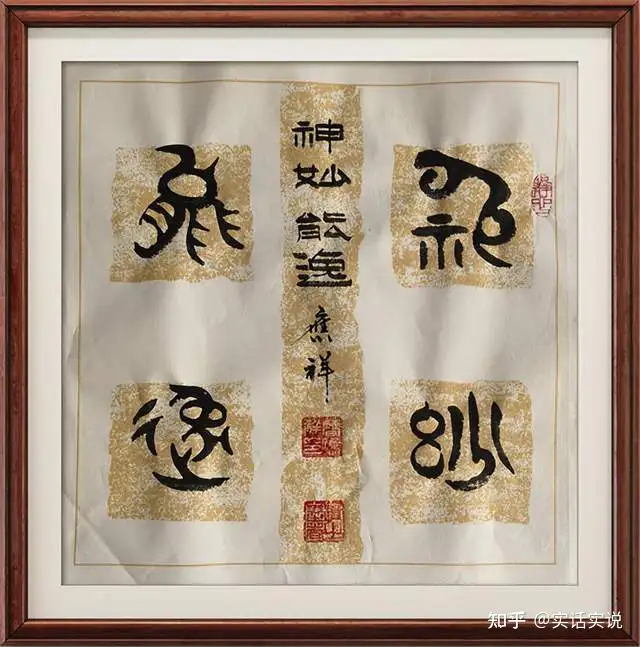 神
妙
神妙能逸
應祥
能
逸
知乎 @实话实说